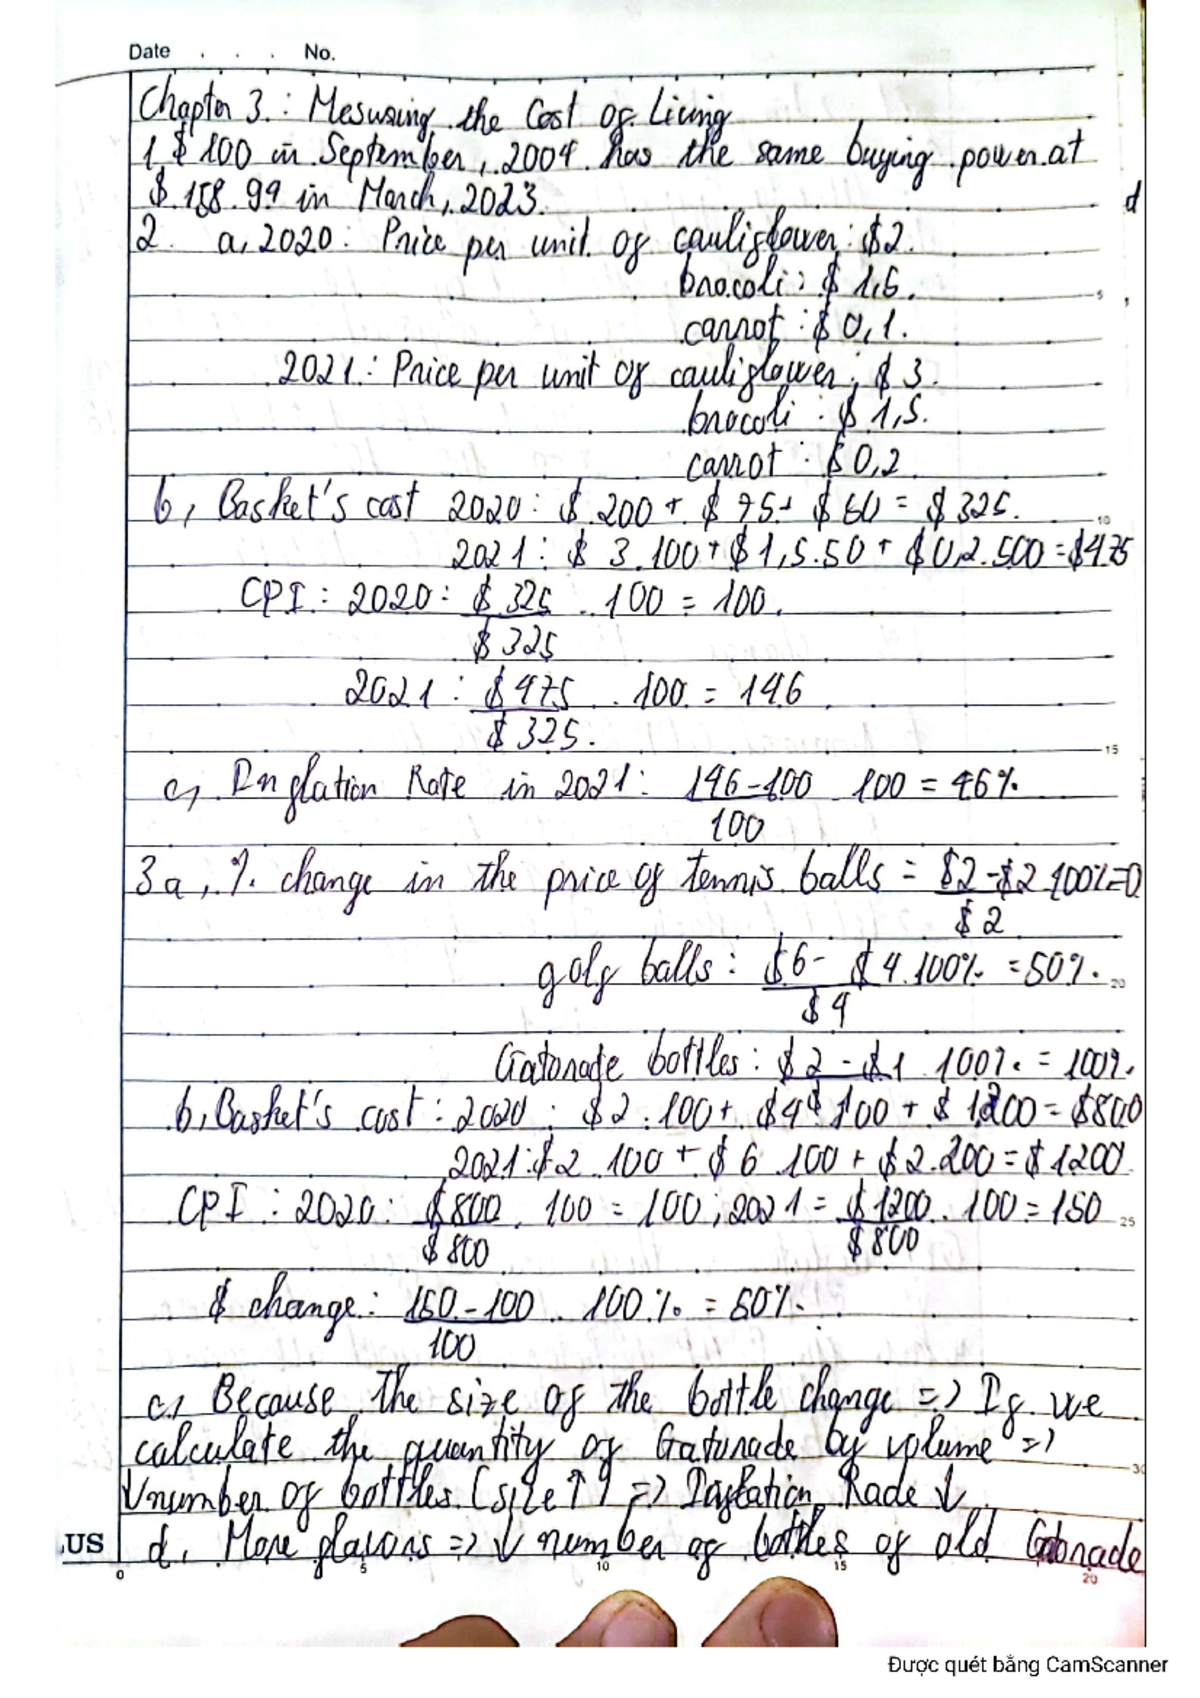 Date . . . No.
Chapter 3 : Mesuring the Cost of Living
1, $ 100 in September, 2004 has the same buying power at
$ 158.99 in March, 2023.
d
2. a, 2020 : Price per unit of cauliflower : $2.
brocoli : $ 1,5.
5
carrot : $ 0,1.
2021 : Price per unit of cauliflower : $ 3.
brocoli : $ 1,5.
carrot : $ 0,2
b, Basket's cost 2020 : $ 200 + $ 75 + $ 50 = $ 325.
10
2021 : $ 3.100 + $ 1,5.50 + $ 0,2.500 = $475
CPI : 2020 : $ 325 . 100 = 100.
$ 325
2021 : $ 475 . 100 = 146
$ 325.
15
c, Inflation Rate in 2021 : 146 - 100 100 = 46%.
100
3a, % change in the price of tennis balls = $2 - $2 .100% = 0
$ 2
golf balls : $6 - $ 4 .100% = 50%.
20
$ 4
Gatorade bottles : $ 2 - $1 100% = 100%.
b, Basket's cost : 2020 : $ 2 .100 + $4 .100 + $ 1.200 = $800
2021 : $ 2 .100 + $ 6 .100 + $ 2.200 = $ 1200
CPI : 2020 : $ 800 . 100 = 100 ; 2021 = $ 1200 . 100 = 150
25
$ 800 $ 800
$ change : 150 - 100 . 100% = 50%.
100
c, Because the size of the bottle change => If we
calculate the quantity of Gatorade by volume =>
30
↓ number of bottles (size ↑) => Inflation Rade ↓
US
d, More flavors => ↓ number of bottles of old Gatorade
0 5 10 15 20
Được quét bằng CamScanner